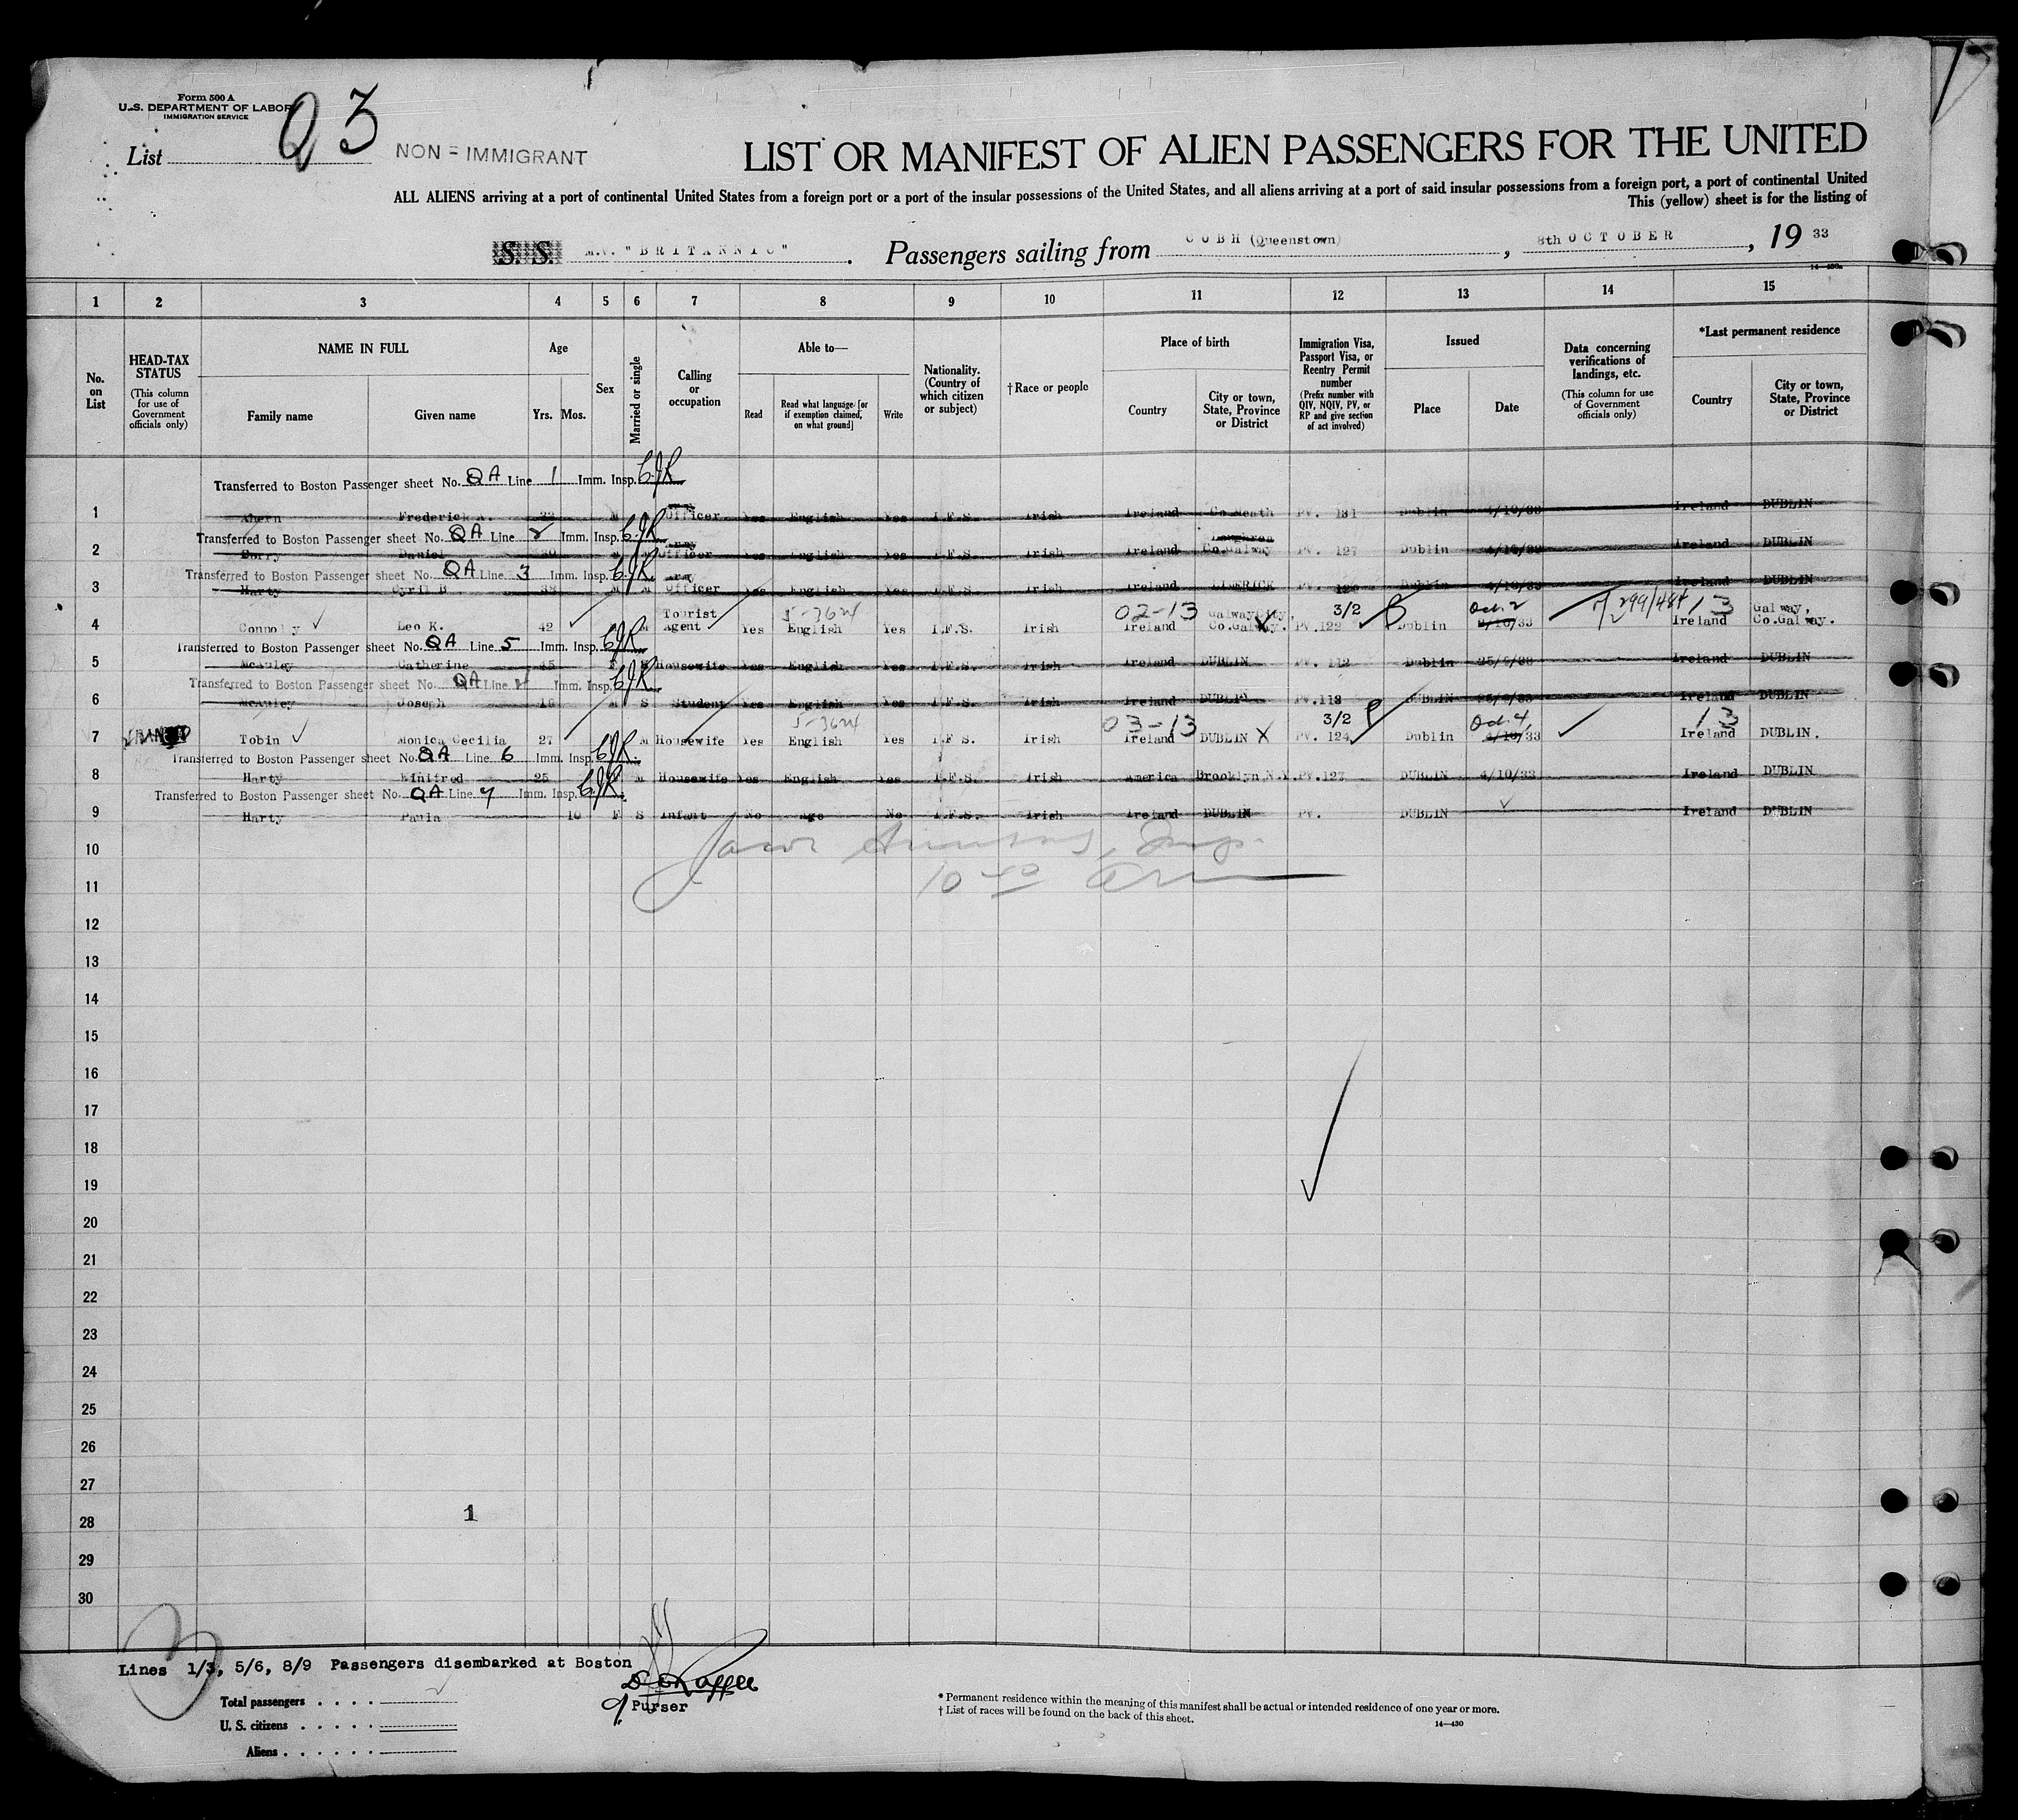 Form 500 A
U.S. DEPARTMENT OF LABOR
IMMIGRATION SERVICE
List 23
NON-IMMIGRANT
LIST OR MANIFEST OF ALIEN PASSENGERS FOR THE UNITED
ALL ALIENS arriving at a port of continental United States from a foreign port or a port of the insular possessions of the United States, and all aliens arriving at a port of said insular possessions from a foreign port, a port of continental United
This (yellow) sheet is for the listing of
S. S. M.V. "BRITANNIC". Passengers sailing from COBH (Queenstown), 8th OCTOBER, 1933
1 2 3 4 5 6 7 8 9 10 11 12 13 14 15
No. on List
HEAD-TAX STATUS (This column for use of Government officials only)
NAME IN FULL Family name Given name
Age Yrs. Mos.
Sex
Married or single
Calling or occupation
Able to— Read Read what language [or if exemption claimed, on what ground] Write
Nationality. (Country of which citizen or subject)
†Race or people
Place of birth Country City or town, State, Province or District
Immigration Visa, Passport Visa, or Reentry Permit number (Prefix number with QIV, NQIV, PV, or RP and give section of act involved)
Issued Place Date
Data concerning verifications of landings, etc. (This column for use of Government officials only)
*Last permanent residence Country City or town, State, Province or District
Transferred to Boston Passenger sheet No. QA Line 1 Imm. Insp.
1 Ahern Frederick A. 33 M Officer Yes English Yes I.F.S. Irish Ireland Co.Meath PV. 131 Dublin 4/10/33 Ireland DUBLIN
Transferred to Boston Passenger sheet No. QA Line 2 Imm. Insp.
2 Daniel Army Officer Yes English Yes I.F.S. Irish Ireland Loughrea Co.Galway PV. 127 Dublin 4/10/33 Ireland DUBLIN
Transferred to Boston Passenger sheet No. QA Line 3 Imm. Insp.
3 Harty Cyril B M M Army Officer Yes English Yes I.F.S. Irish Ireland LIMERICK PV. Dublin 4/10/33 Ireland DUBLIN
4 Connolly Leo K. 42 M Tourist Agent Yes 5-3624 English Yes I.F.S. Irish 02-13 Ireland Galway City, Co.Galway. 3/2 PV.122 Dublin Oct. 2 2/10/33 299/484 13 Ireland Galway, Co.Galway.
Transferred to Boston Passenger sheet No. QA Line 5 Imm. Insp.
5 McAuley Catherine 45 F Housewife Yes English Yes I.F.S. Irish Ireland DUBLIN PV. 112 Dublin 25/9/33 Ireland DUBLIN
Transferred to Boston Passenger sheet No. QA Line Imm. Insp.
6 McAuley Joseph M S Student Yes English Yes I.F.S. Irish Ireland DUBLIN PV.113 DUBLIN 25/9/33 Ireland DUBLIN
7 Tobin Monica Cecilia 27 M Housewife Yes 5-3624 English Yes I.F S. Irish 03-13 Ireland DUBLIN 3/2 PV. 124 Dublin Oct. 4, 4/10/33 13 Ireland DUBLIN.
Transferred to Boston Passenger sheet No. QA Line 6 Imm. Insp.
8 Harty Winifred 25 F M Housewife Yes English Yes I.F.S. Irish America Brooklyn N.Y. PV.127 DUBLIN 4/10/33 Ireland DUBLIN
Transferred to Boston Passenger sheet No. QA Line 7 Imm. Insp.
9 Harty Paula 10 F S Infant No Age No I.F.S. Irish Ireland DUBLIN PV. DUBLIN Ireland DUBLIN
10
11
12
13
14
15
16
17
18
19
20
21
22
23
24
25
26
27
28 1
29
30
Lines 1/3, 5/6, 8/9 Passengers disembarked at Boston
Total passengers
U. S. citizens
Aliens
Purser
* Permanent residence within the meaning of this manifest shall be actual or intended residence of one year or more.
† List of races will be found on the back of this sheet.
14—430